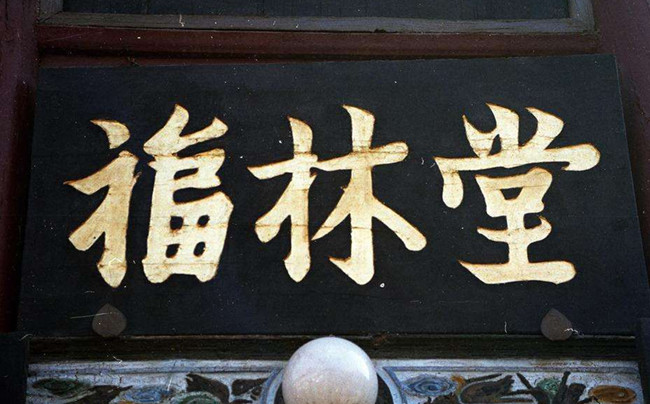 福林堂